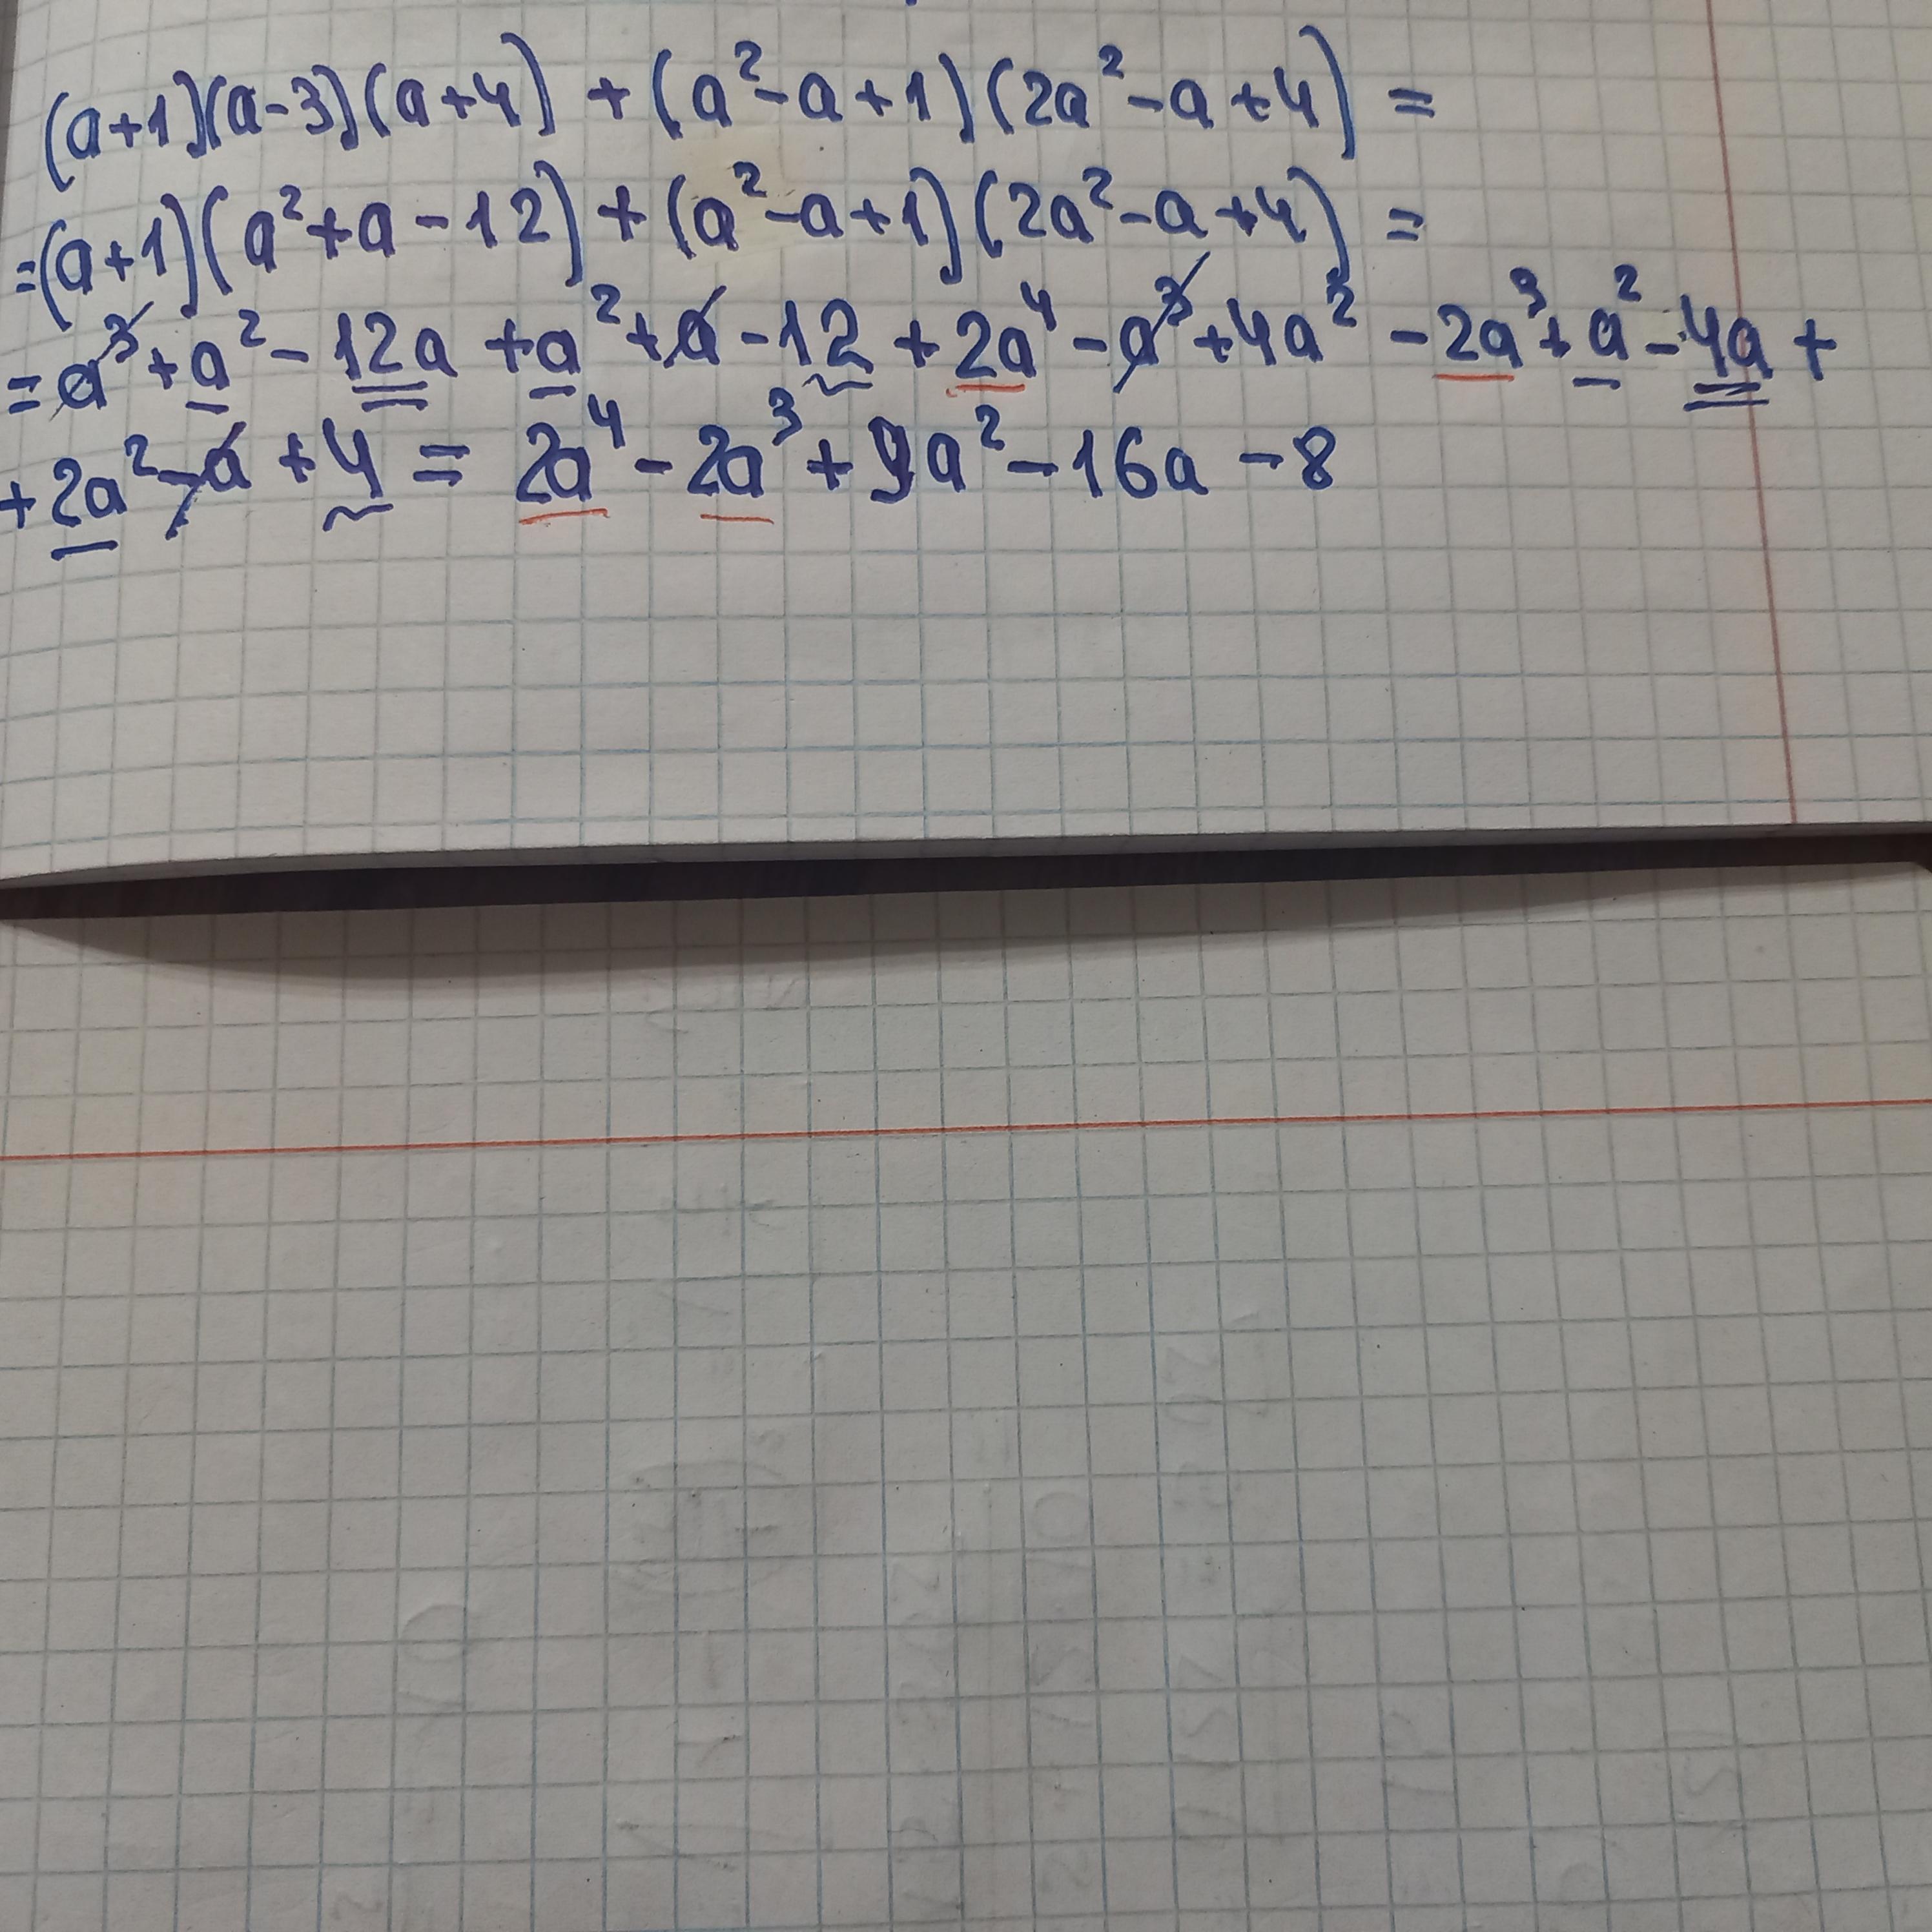 (a+1)(a-3)(a+4) + (a²-a+1)(2a²-a+4) =
=(a+1)(a²+a-12)+(a²-a+1)(2a²-a+4) =
=a³+a²-12a+a²+a-12+2a⁴-a³+4a²-2a³+a²-4a+
+2a²-a+4=2a⁴-2a³+9a²-16a-8